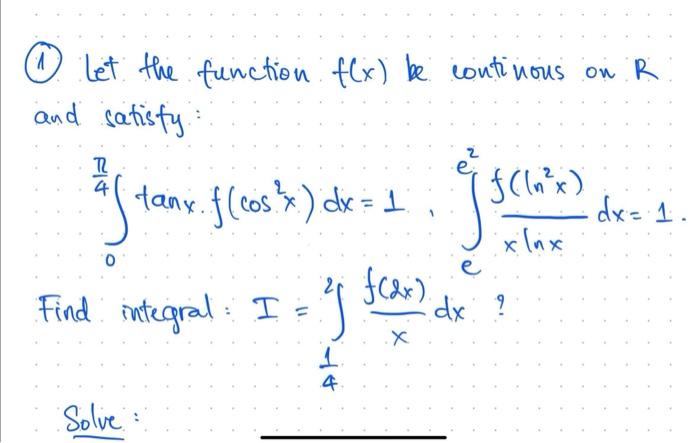 ① Let the function f(x) be continous on R
and satisfy:
∫_0^{π/4} tanx.f(cos²x) dx = 1, ∫_e^{e²} f(ln²x)/(x ln x) dx = 1.
Find integral: I = ∫_{1/4}^2 f(2x)/x dx ?
Solve: